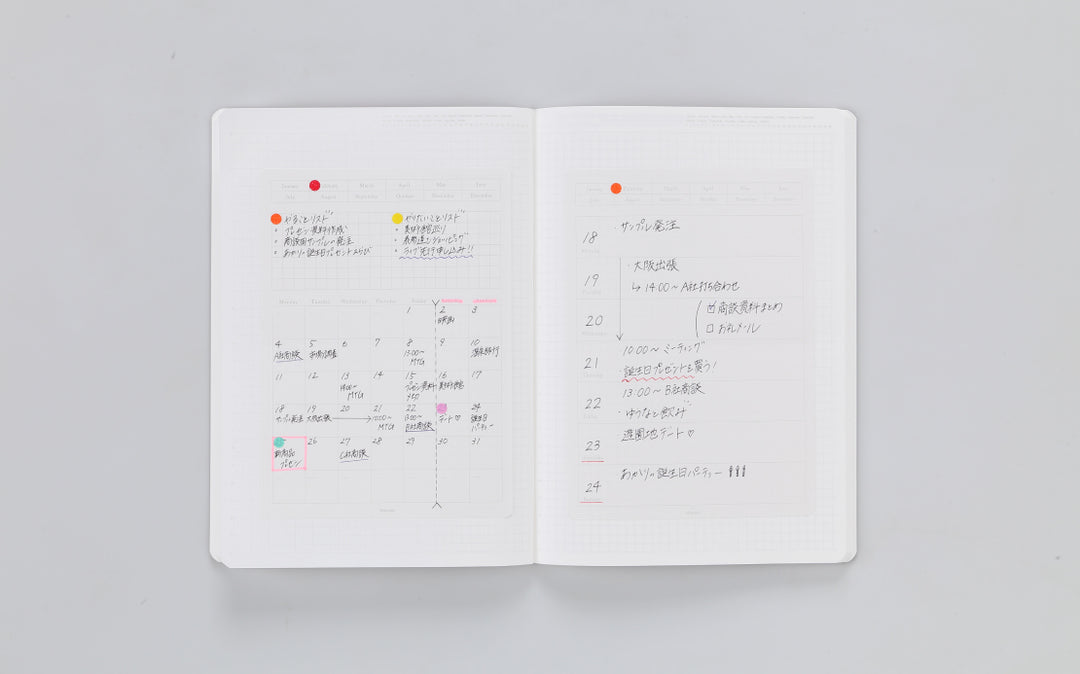 January March April May June
July August September October November December
やることリスト
・プレゼン資料作成
・商談用サンプルの発注
・あかりの誕生日プレゼントえらび
やりたいことリスト
・美術館巡り
・ショッピング
・ライブ先行申し込み!!
Monday Tuesday Wednesday Thursday Friday Saturday
1 2 3
映画
4 5 6 7 8 9 10
A社商談
市場調査
13:00~
MTG
温泉旅行
11 12 13 14 15 16 17
MTG
プレゼン資料
美術館
18 19 20 21 22 24
サンプル発注
大阪出張
10:00~
MTG
13:00~
B社商談
デート♡
誕生日
パーティー
26 27 28 29 30 31
新商品
プレゼン
C社商談
January March April May June
July August September October November December
18
・サンプル発注
19
・大阪出張
↳ 14:00~A社打ち合わせ
20
☑商談資料まとめ
☐お礼メール
21
10:00~ミーティング
・誕生日プレゼントを買う!
22
13:00~B社商談
・ゆうなと飲み
23
遊園地デート♡
24
あかりの誕生日パーティー